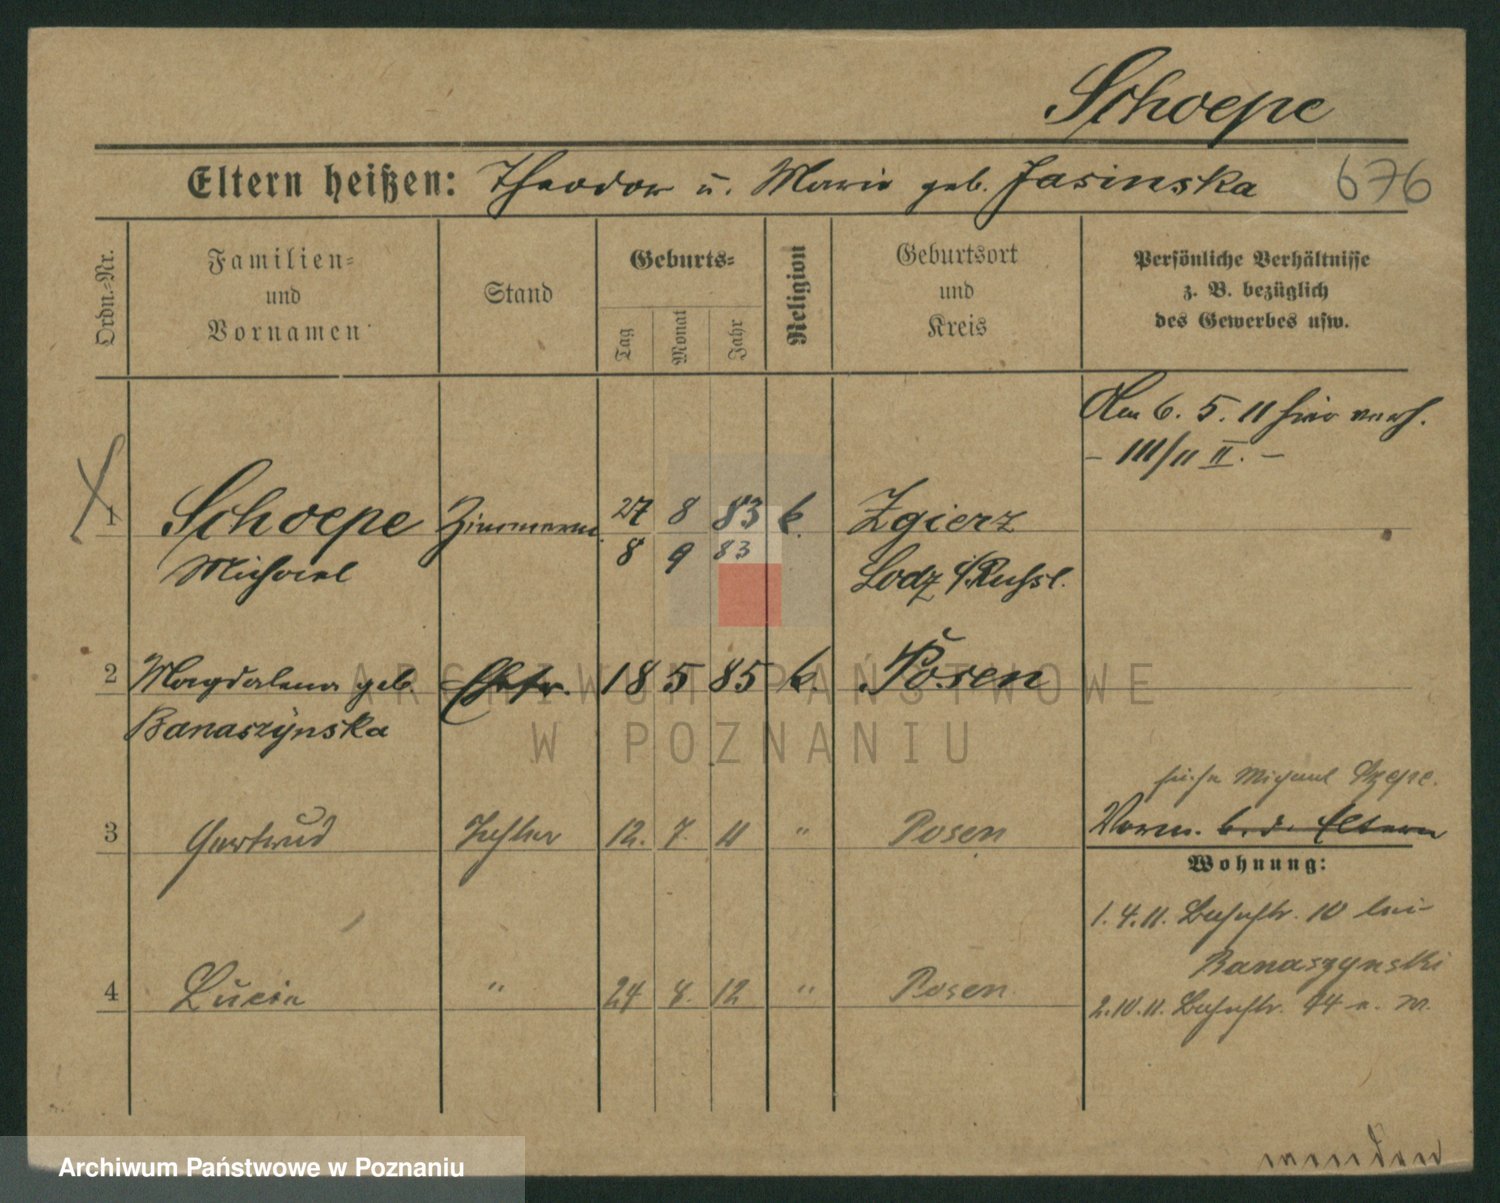 Schoepe
Eltern heißen: Theodor u. Marie geb. Jasinska 676
Ordn.-Nr.
Familien-
und
Vornamen
Stand
Geburts-
Tag
Monat
Jahr
Religion
Geburtsort
und
Kreis
Persönliche Verhältnisse
z. B. bezüglich
des Gewerbes usw.
Am 6. 5. 11 hier verh.
– III/11 II. –
1 Schoepe Zimmerm. 27 8 83 k. Zgierz
Michael 8 9 83 Lodz i/Russl.
2 Magdalena geb. Ehefr. 18 5 85 k. Posen
Banaszynska
siehe Michael Szepe.
3 Gertrud Tochter 12. 7. 11 " Posen
Vorm. b. d. Eltern
Wohnung:
1. 4. 11. 10 bei
Banaszynski
4 Lucia " 24 8. 12 " Posen
2. 10. 11. 44 a. W.
wenden
ARCHIWUM PAŃSTWOWE
W POZNANIU
Archiwum Państwowe w Poznaniu